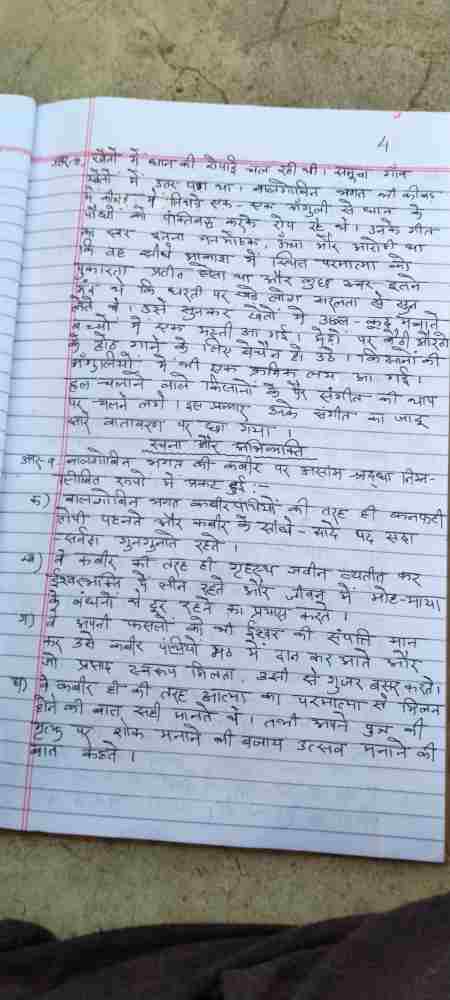 4
उत्तर-8. खेतों में धान की रोपाई चल रही थी। समूचा गाँव
खेतों में उतर पड़ा था। बालगोबिन भगत भी कीचड़
में लिथड़े एक-एक अँगुली से धान के
पौधों को पंक्तिबद्ध करके रोप रहे थे। उनके गीत
का स्वर इतना मनमोहक, ऊँचा और आरोही था
कि वह सीधे आकाश में स्थित परमात्मा को
पुकारता प्रतीत होता था और कुछ स्वर इतने
थे कि धरती पर खड़े लोग सरलता से सुन
लेते थे। उसे सुनकर खेतों में उछल-कूद मचाते
बच्चों में एक मस्ती आ गई। मेंड़ों पर बैठी औरतों
के होंठ गाने के लिए बेचैन हो उठे। किसानों की
अँगुलियों में भी एक क्रमिक लय आ गई।
हल-चलाने वाले किसानों के पैर संगीत की थाप
पर चलने लगे। इस प्रकार उनके संगीत का जादू
सारे वातावरण पर छा गया।
रचना और अभिव्यक्ति
उत्तर-9. बालगोबिन भगत की कबीर पर असीम श्रद्धा निम्न-
लिखित रूपों में प्रकट हुई:-
क) बालगोबिन भगत कबीरपंथियों की तरह ही कनफटी
टोपी पहनते और कबीर के सीधे-सादे पद सदा
सर्वदा गुनगुनाते रहते।
ख) वे कबीर की तरह ही गृहस्थ जीवन व्यतीत कर
ईश्वरभक्ति में लीन रहते और जीवन में मोह-माया
के बंधनों से दूर रहने का प्रयास करते।
ग) वे अपनी फसलों को भी ईश्वर की संपत्ति मान
कर उसे कबीर पंथियों मठ में दान कर आते और
जो प्रसाद स्वरूप मिलता, उसी से गुजर बसर करते।
घ) वे कबीर ही की तरह आत्मा का परमात्मा से मिलन
होने की बात सही मानते थे। तभी अपने पुत्र की
मृत्यु पर शोक मनाने की बजाय उत्सव मनाने की
बात कहते।